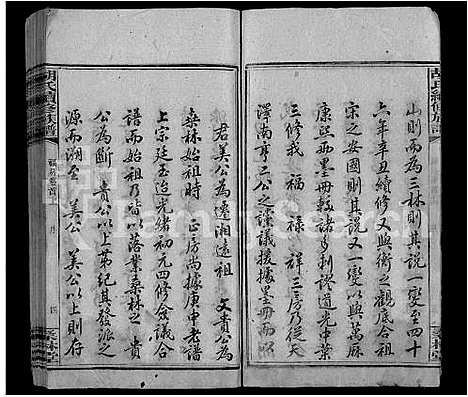 胡氏續修族譜
山則而為三林則其說一變至四十
六年辛丑續修又與術之觀底合祖
宋之安國則其說又一變以與萬厤
康熙兩墨冊較諸多刺謬道光中葉
三修我 福 祿 祥 三房乃從天
澤尚亨二公之謹議援據墨冊而以
君美公為遷湘遠祖 文貴公為
桑林始祖 時 正房尚據庚申老譜
上宗廷玉迨光緒初元四修僉議合
譜而始祖乃皆以落業桑林之
公為斷 貴公以上第紀其發派之
源而溯至 美公 美公以上則存
胡氏續修族譜
四
桑林堂
FamilySearch